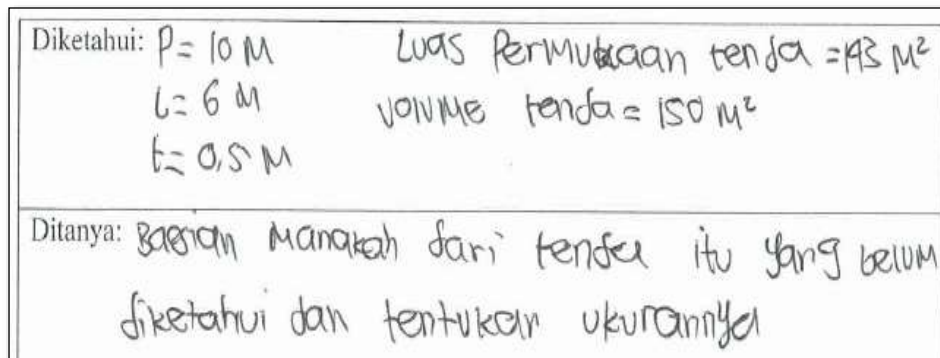 Diketahui: P = 10 M Luas Permukaan tenda = 193 M²
l = 6 M Volume tenda = 150 M²
t = 0,5 M
Ditanya: Bagian Manakah dari tenda itu yang belum
diketahui dan tentukan ukurannya